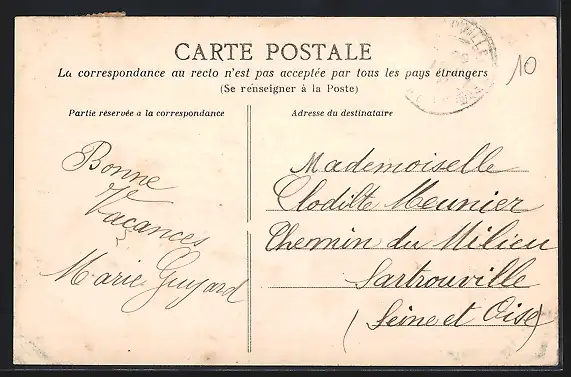 CARTE POSTALE
La correspondance au recto n'est pas acceptée par tous les pays étrangers
(Se renseigner à la Poste)
Partie réservée a la correspondance
Adresse du destinataire
10
Bonne
Vacances
Marie Guyard
Mademoiselle
Clodilte Meunier
Chemin du Milieu
Sartrouville
(Seine et Oise)